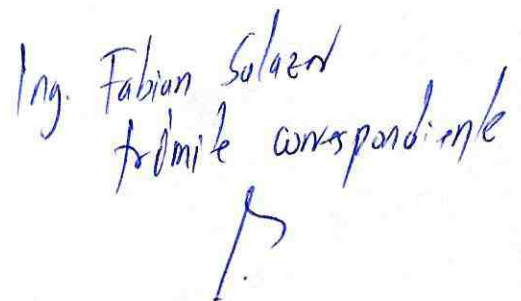 Ing. Fabian Salazar
trámite correspondiente